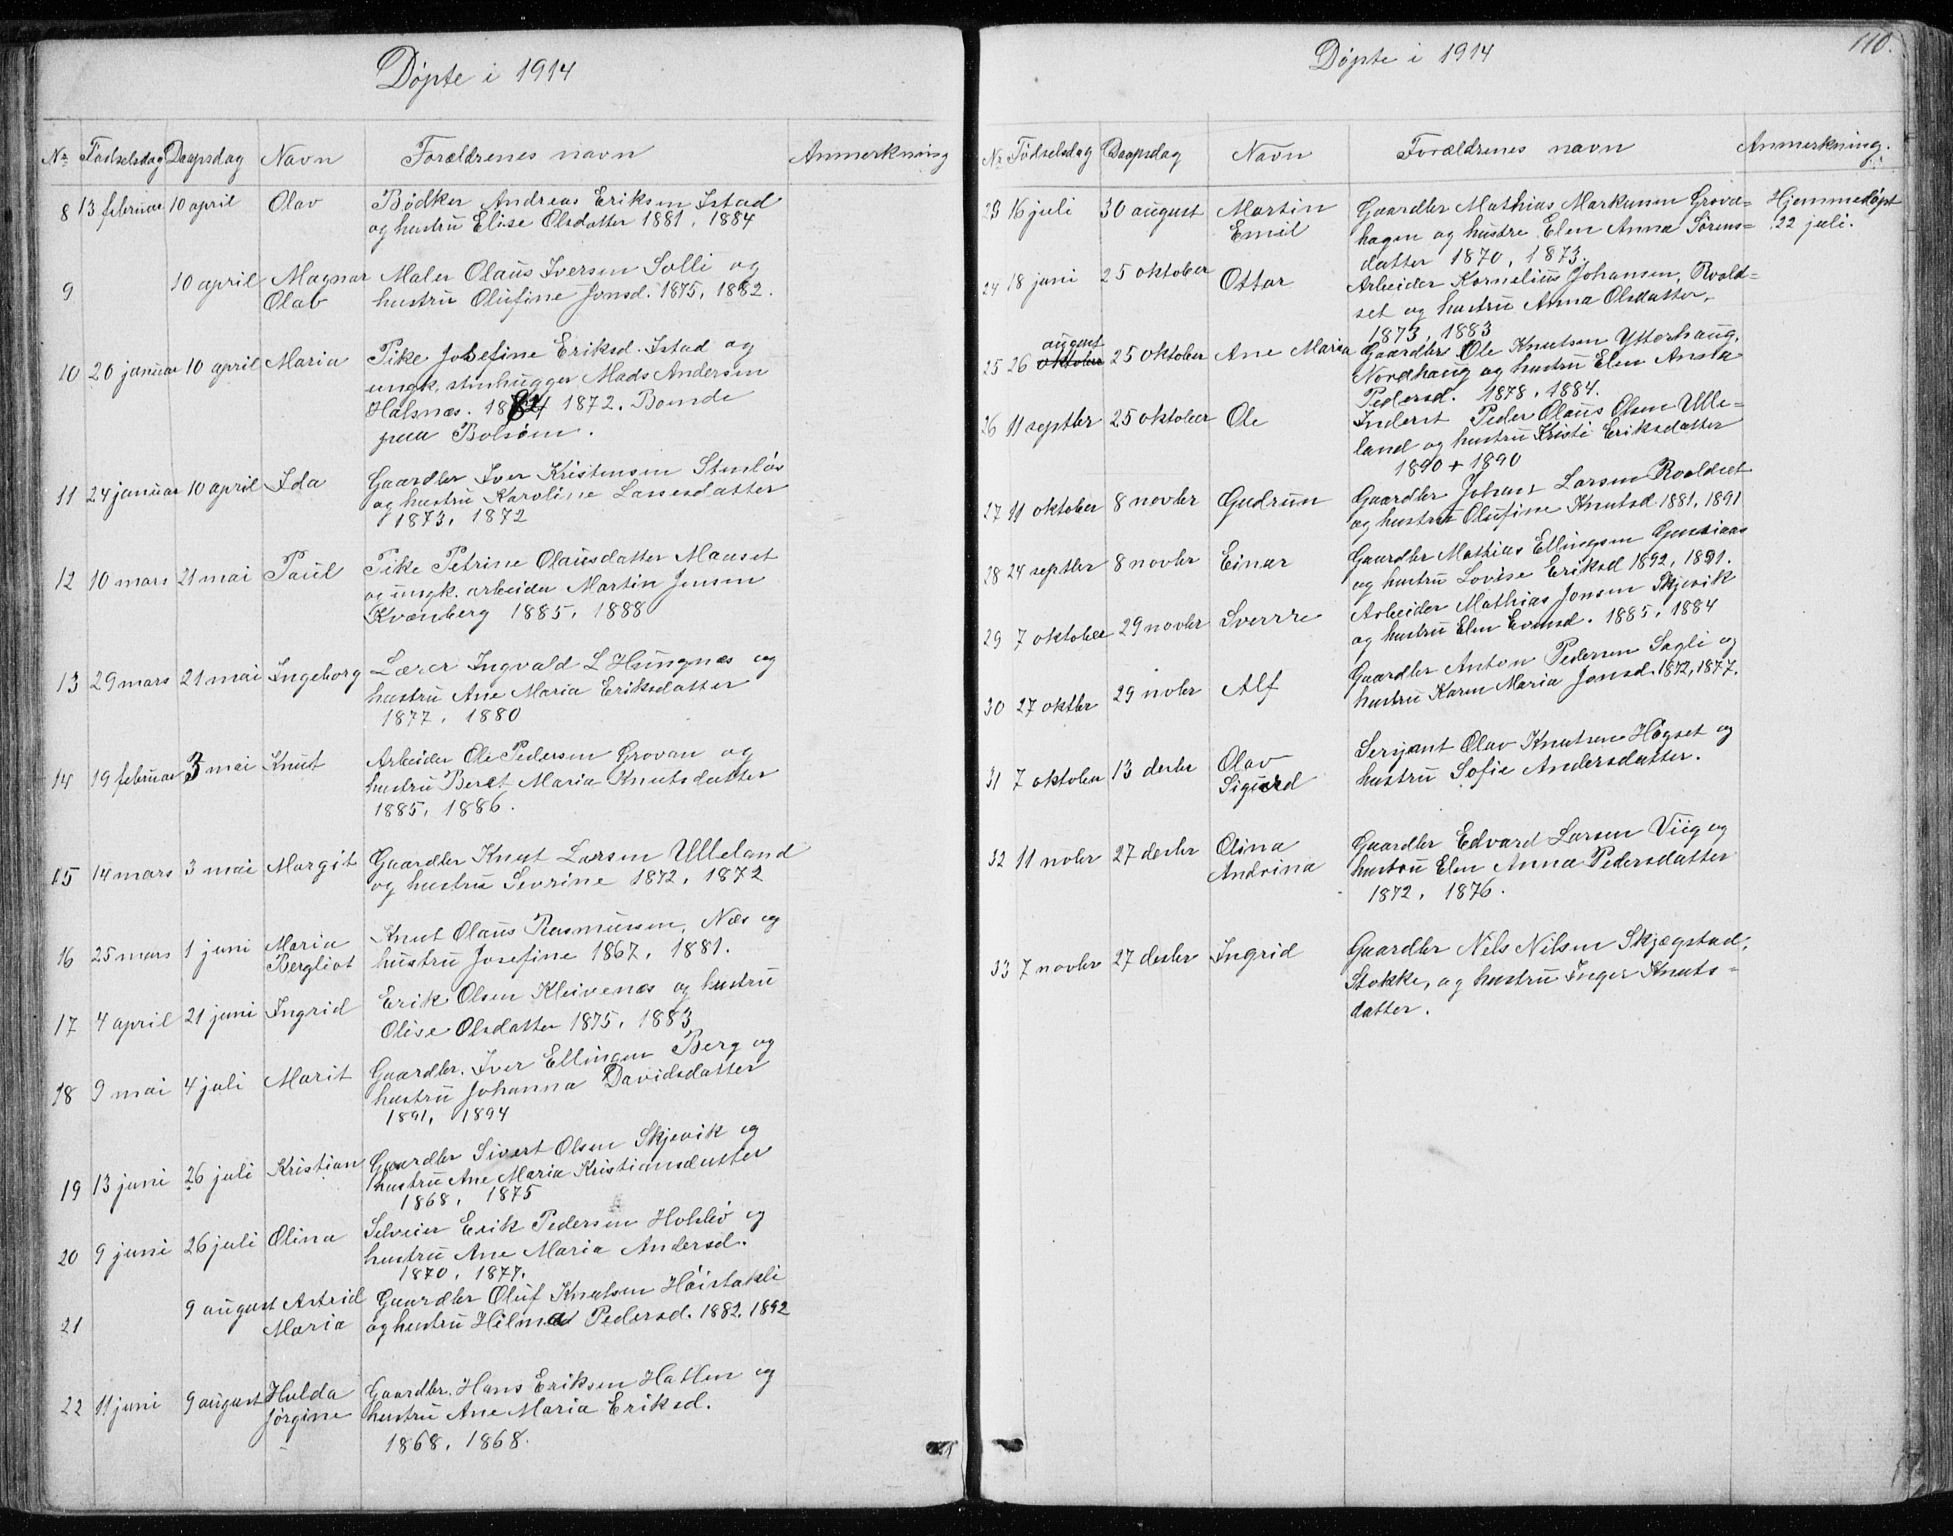 Døpte i 1914
Nr. Fødselsdag Daapsdag Navn Forældrenes navn Anmerkning
8 13 februar 10 april Olav Bødker Andreas Eriksen Istad
og hustru Elise Olsdatter 1881, 1884
9 10 april Magnar Maler Olaus Iversen Solli og
Olav hustru Olufine Jonsd. 1875, 1882.
10 20 januar 10 april Maria Pike Josefine Eriksd. Istad og
ungk. stenhugger Mads Andersen
Halsnæs. 1884 1872. Boende
paa Bolsøen.
11 24 januar 10 april Ida Gaardbr Iver Kristensen Stenløs
og hustru Karoline Lassesdatter
1873, 1872
12 10 mars 21 mai Paul Pike Petrine Olausdatter Maaset
og ungk. arbeider Martin Jensen
Kvænberg 1885, 1888
13 29 mars 21 mai Ingeborg Lærer Ingvald L Haugnæs og
hustru Ane Maria Eriksdatter
1877, 1880
14 19 februar 3 mai Knut Arbeider Ole Pedersen Grovan og
hustru Beret Maria Knutsdatter
1885, 1886.
15 14 mars 3 mai Margit Gaardbr Knut Larsen Ulleland
og hustru Sevrine 1872, 1872
16 25 mars 1 juni Maria Knut Olaus Rasmussen, Næs og
Bergliot hustru Josefine 1867, 1881.
17 4 april 21 juni Ingrid Erik Olsen Kleivenæs og hustru
Olise Olsdatter 1875, 1883
18 9 mai 4 juli Marit Gaardbr. Iver Ellingsen Berg og
hustru Johanna Davidsdatter
1891, 1894
19 13 juni 26 juli Kristian Gaardbr Sivert Olsen Skjevik og
hustru Ane Maria Kristiansdatter
1868, 1875
20 9 juni 26 juli Olina Selveier Erik Pedersen Hoksløv og
hustru Ane Maria Andersd.
1870, 1877.
21 9 august Astrid Gaardbr Oluf Knutsen Høistakli
Maria og hustru Hilma Pedersd. 1882, 1892
22 11 juni 9 august Hulda Gaardbr. Hans Eriksen Hatlen og
Jørgine hustru Ane Maria Eriksd.
1868, 1868.
Døpte i 1914
110.
Nr. Fødselsdag Daapsdag Navn Forældrenes navn Anmerkning.
23 16 juli 30 august Martin Gaardbr Mathias Markussen Grova= Hjemmedøpt
Emil hagen og hustru Elen Anna Sørens= 22 juli.
datter 1870, 1873.
24 18 juni 25 oktober Ottar Arbeider Kornelius Johansen, Roald=
set og hustru Anna Olsdatter,
1873, 1883
august
25 26 oktober 25 oktober Ane Maria Gaardbr Ole Knutsen Ytterhaug,
Nordhaug og hustru Elen Anna
Pedersd. 1878, 1884.
26 11 septbr 25 oktober Ole Inderst Peder Olaus Olsen Ulle=
land og hustru Kristi Eriksdatter
1890 + 1890
27 11 oktober 8 novbr Gudrun Gaardbr Johan Larsen Roaldset
og hustru Olufine Knutsd 1881, 1891
28 24 septbr 8 novbr Einar Gaardbr Mathias Ellingsen Gussiaas
og hustru Lovise Eriksd 1892, 1891.
29 7 oktober 29 novbr Sverrre Arbeider Mathias Jonsen Skjevik
og hustru Elen Evensd. 1885, 1884
30 27 oktbr 29 novbr Alf Gaardbr Anton Pedersen Sagli og
hustru Karen Maria Jonsd. 1872, 1877.
31 7 oktober 13 desbr Olav Serjant Olav Knutsen Høgset og
Sigurd hustru Sofie Andersdatter.
32 11 novbr 27 desbr Olina Gaardbr Edvard Larsen Viig og
Andrina hustru Elen Anna Pedersdatter
1872, 1876.
33 7 novbr 27 desbr Ingrid Gaardbr Nels Nilsen Skjægstad,
Stokke, og hustru Inger Knuts=
datter.